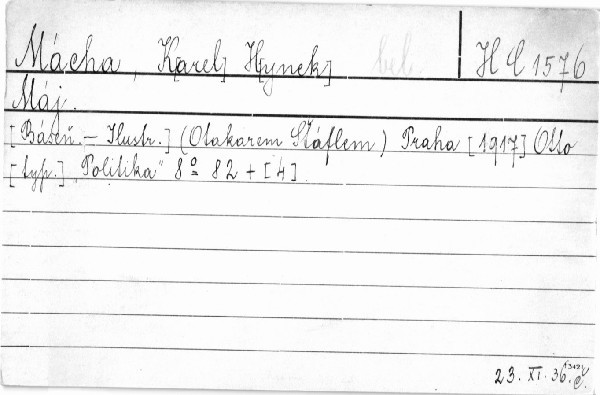 Mácha, K[arel] H[ynek] bel. H C 1576
Máj.
[Báseň. – Ilustr.] (Otakarem Štáflem) Praha [1917] Otto
[typ.] „Politika" 8° 82 + [4].
23. XI. 36.